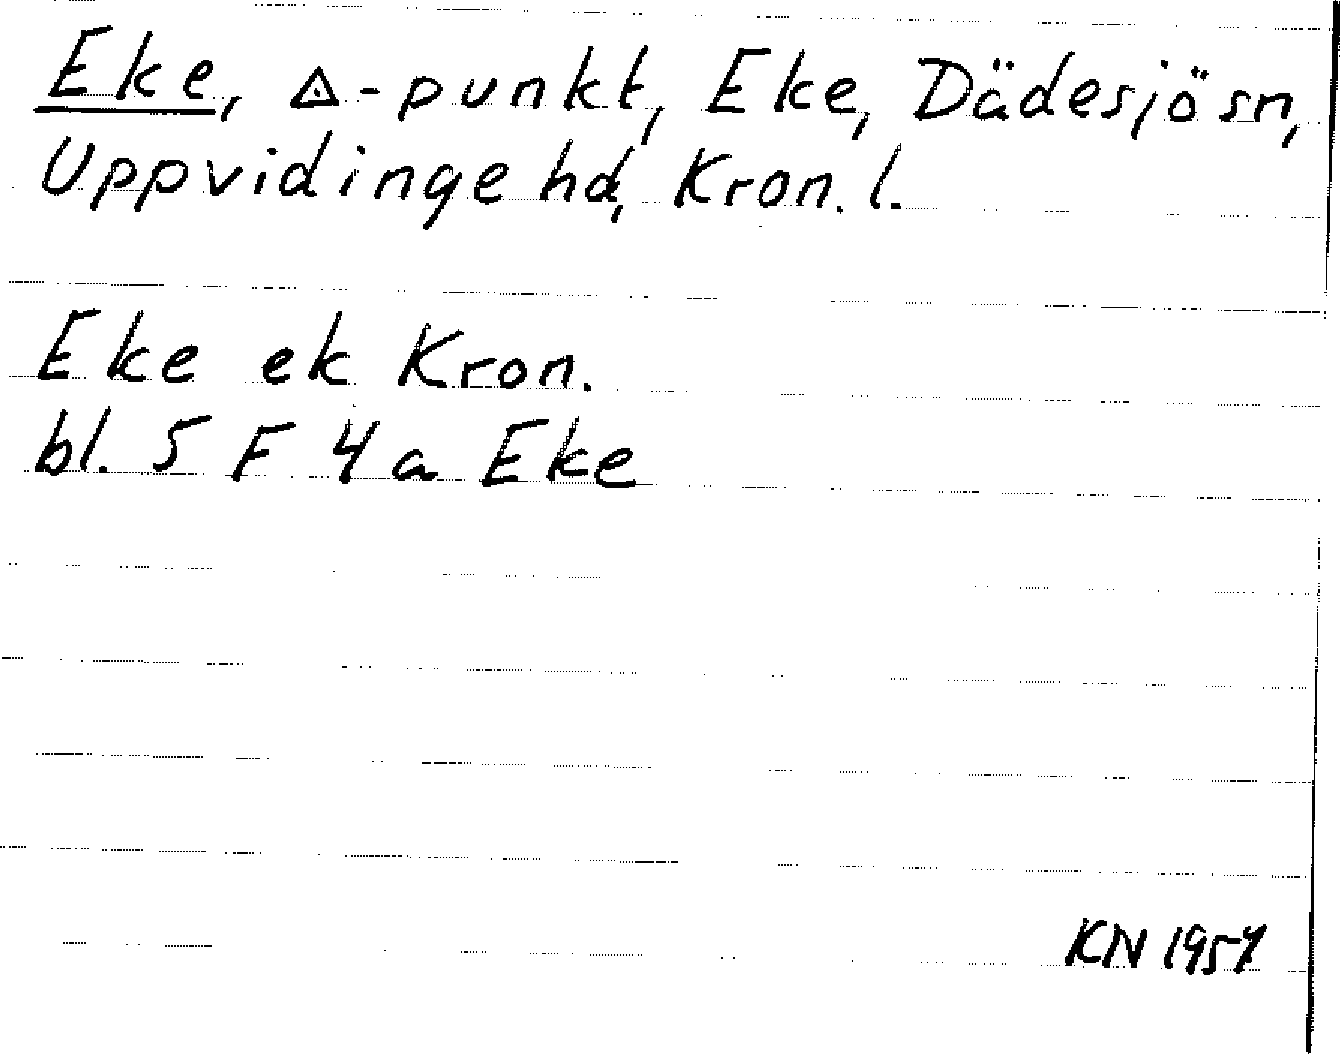 Eke, ◬-punkt, Eke, Dädesjö sn,
Uppvidinge hd, Kron. l.
Eke ek Kron.
bl. 5 F 4 a Eke
KN 1957